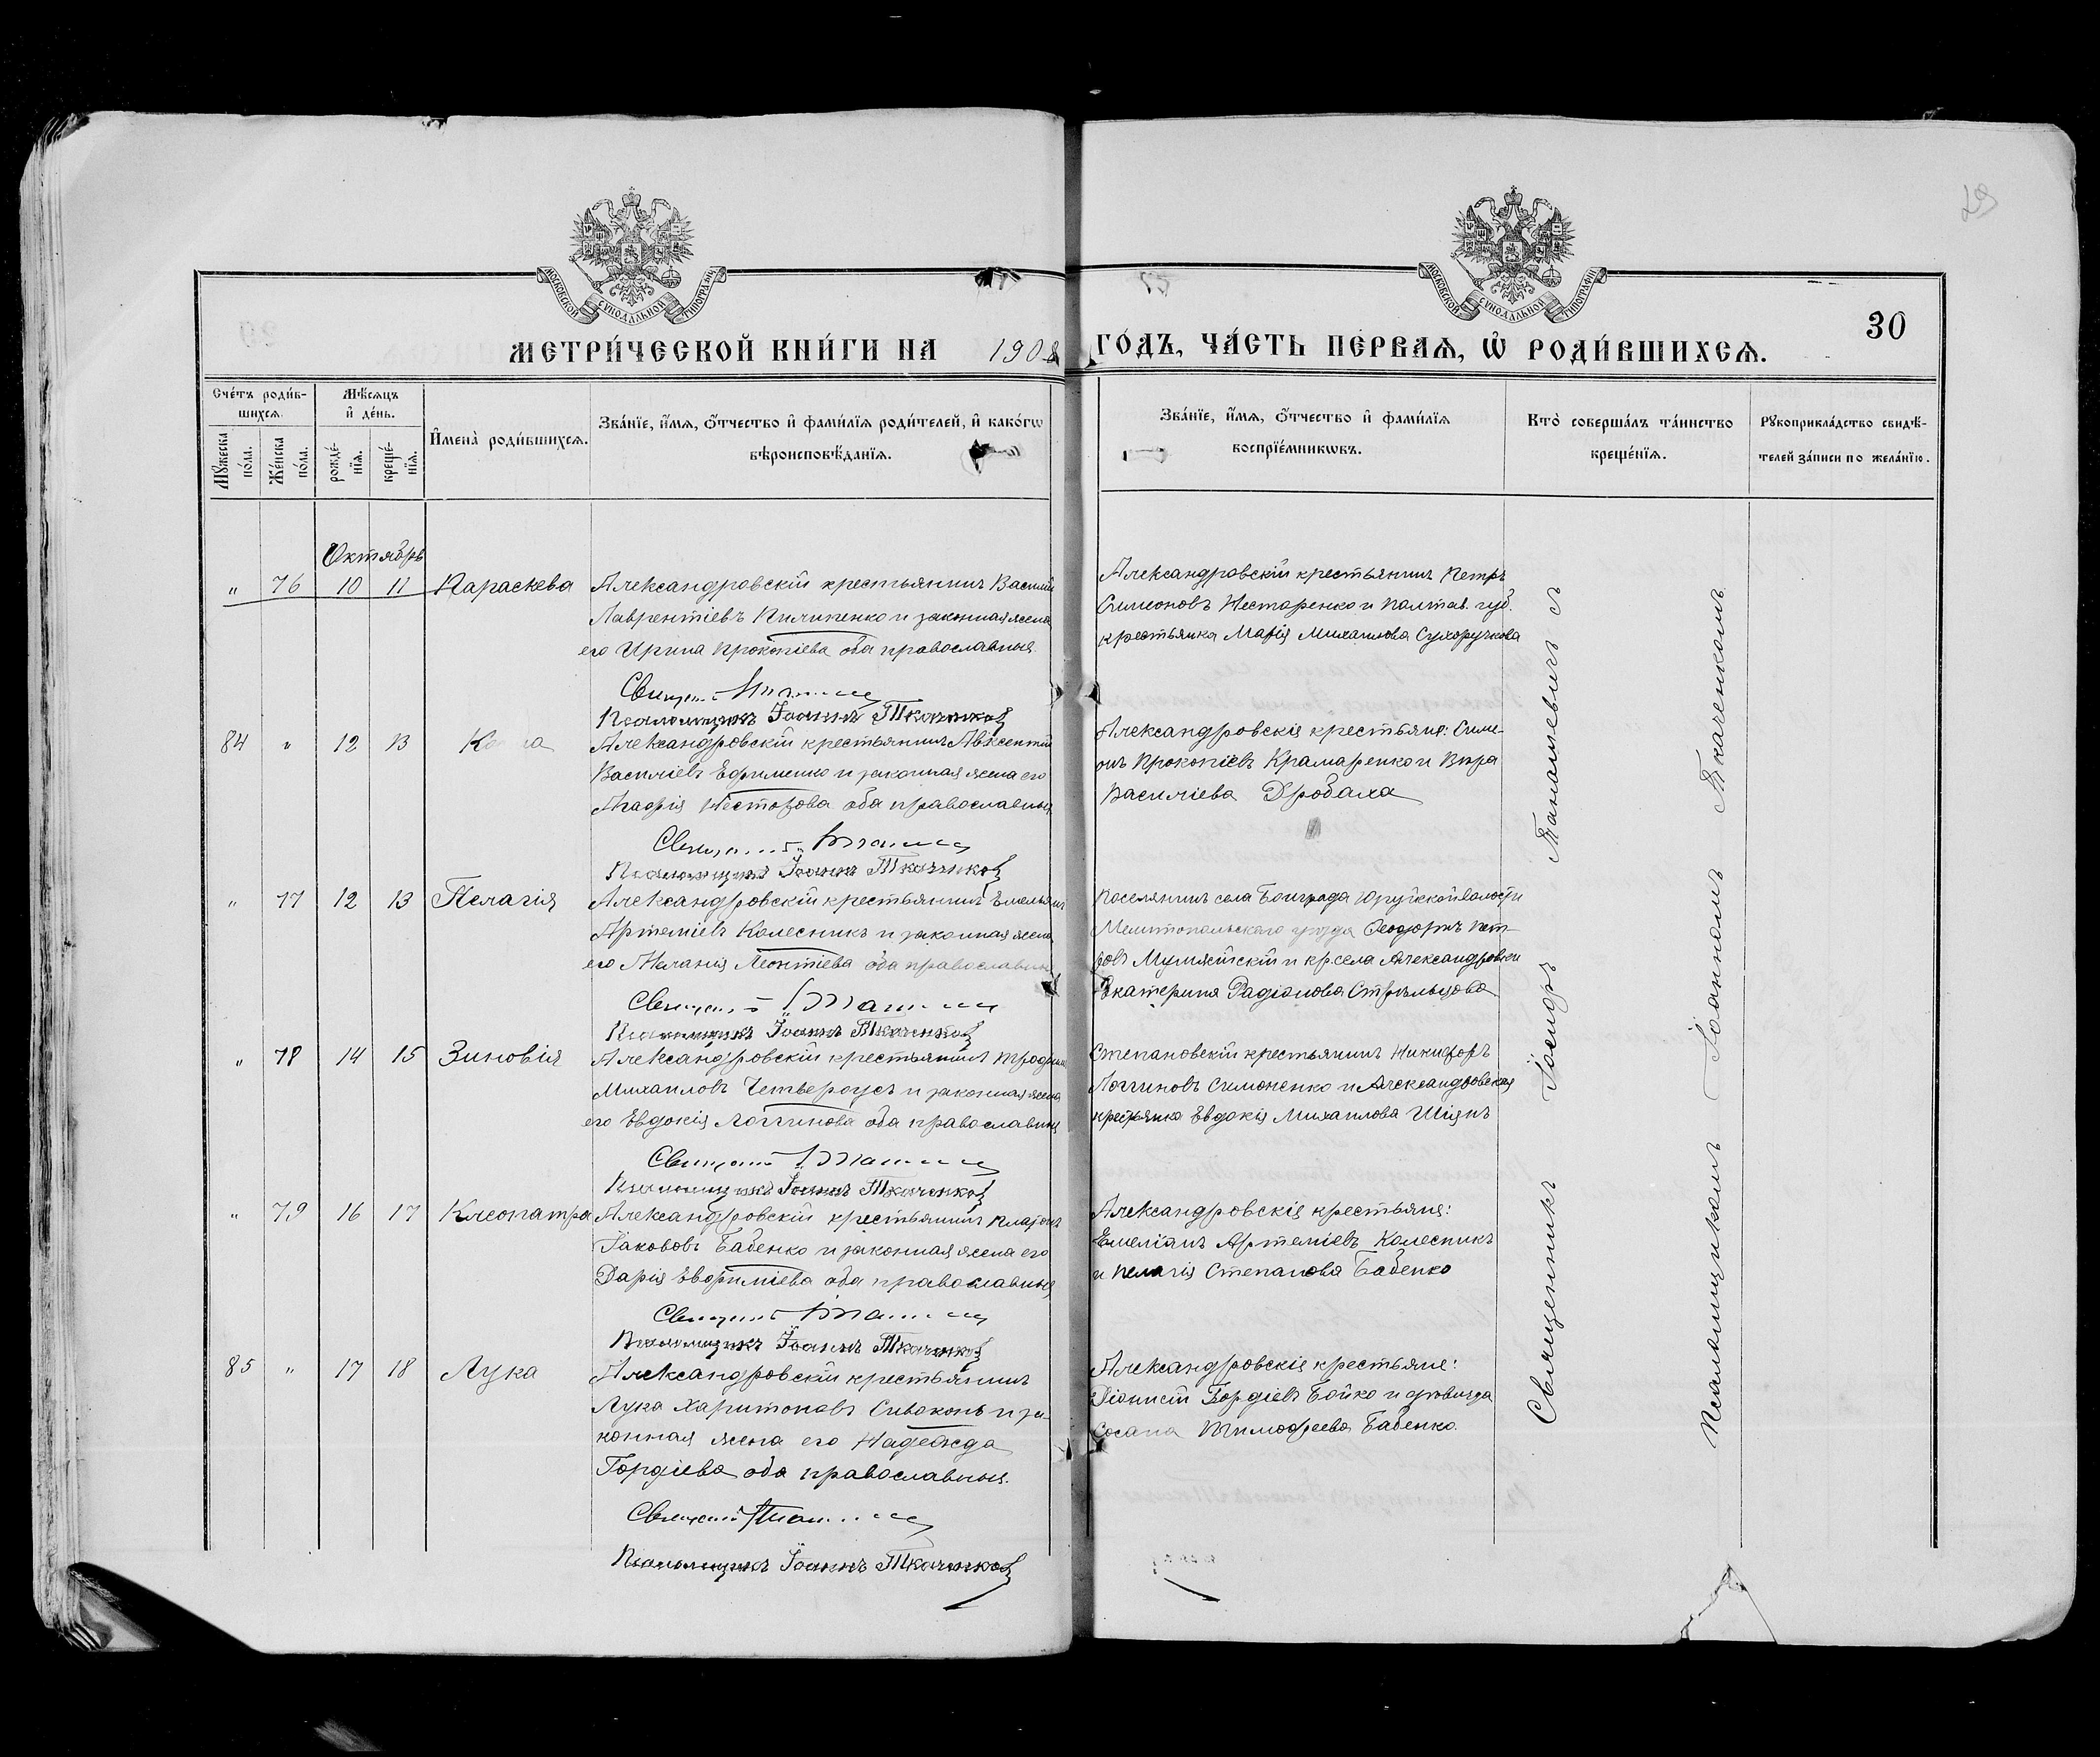 29
МОСКОВСКОЙ СѴНОДАЛЬНОЙ ТИПОГРАФІИ
МОСКОВСКОЙ СѴНОДАЛЬНОЙ ТИПОГРАФІИ
30
МЕТРИ́ЧЕСКОЙ КНИ́ГИ НА 1908 ГО́ДЪ, ЧА́СТЬ ПЕ́РВАѦ, Ѡ҆ РОДИ́ВШИХСѦ.
Сче́тъ роди́в-
шихсѧ.
Мꙋ́жеска по́ла.
Же́нска по́ла.
Мѣ́сѧцъ
и҆ де́нь.
рожде́-
нїѧ.
креще́-
нїѧ.
И҆мена̀ роди́вшихсѧ.
Зва́нїе, и҆́мѧ, ѻ҆́тчество и҆ фами́лїѧ роди́телей, и҆ како́гѡ
вѣроисповѣ́данїѧ.
Зва́нїе, и҆́мѧ, ѻ҆́тчество и҆ фами́лїѧ
воспрїе́мникѡвъ.
Кто̀ соверша́лъ та́инство
креще́нїѧ.
Рꙋкоприкла́дство свидѣ́-
телей за́писи по жела́нїю.
Октябрь
" 76 10 11 Параскева
Александровскій крестьянинъ Василій
Лаврентіевъ Пилипенко и законная жена
его Ирина Прокопіева оба православные.
Псаломщикъ Іоаннъ Ткаченковъ
Александровскій крестьянинъ Петръ
Симеоновъ Нестаренко и Полтав. губ.
крестьянка Марія Михаилова Сухоручкова
84 " 12 13
Александровскій крестьянинъ Авксентій
Василіевъ Ефименко и законная жена его
Агафія Несторова оба православные
Псаломщикъ Іоаннъ Ткаченковъ
Александровскія крестьяне: Симе-
онъ Прокопіевъ Крамаренко и Вѣра
Василіева Дробаха
" 77 12 13 Пелагія
Александровскій крестьянинъ Емельянъ
Артеміевъ Колесникъ и законная жена
его Меланія Леонтіева оба православны
Псаломщикъ Іоаннъ Ткаченковъ
Поселянинъ села Волости
Мелитопольскаго уѣзда Ѳеодоръ Пет-
ровъ и кр. села Александровки
Екатерина Радіонова Стрѣльцова
" 78 14 15 Зиновія
Александровскій крестьянинъ Трофимъ
Михаиловъ Четвероусъ и законная жена
его Евдокія Логгинова оба православны
Псаломщикъ Іоаннъ Ткаченковъ
Степановскій крестьянинъ Никифоръ
Логгиновъ Симоненко и Александровская
крестьянка Евдокія Михаилова Шіянъ
" 79 16 17 Клеопатра
Александровскій крестьянинъ Платонъ
Іакововъ Бабенко и законная жена его
Дарія Евфиміева оба православные
Псаломщикъ Іоаннъ Ткаченковъ
Александровскія крестьяне:
Емеліанъ Артеміевъ Колесникъ
и Пелагія Степанова Бабенко
85 " 17 18 Лука
Александровскій крестьянинъ
Лука Харитоновъ Сивоконь и за-
конная жена его Надежда
Гордіева оба православные.
Псаломщикъ Іоаннъ Ткаченковъ
Александровскія крестьяне:
Діонисій Гордіевъ Бойко и дѣвица
Сосана Тимофеева Бабенко.
Священникъ Іосифъ Танашевичъ съ
Псаломщикомъ Іоанномъ Ткаченкомъ